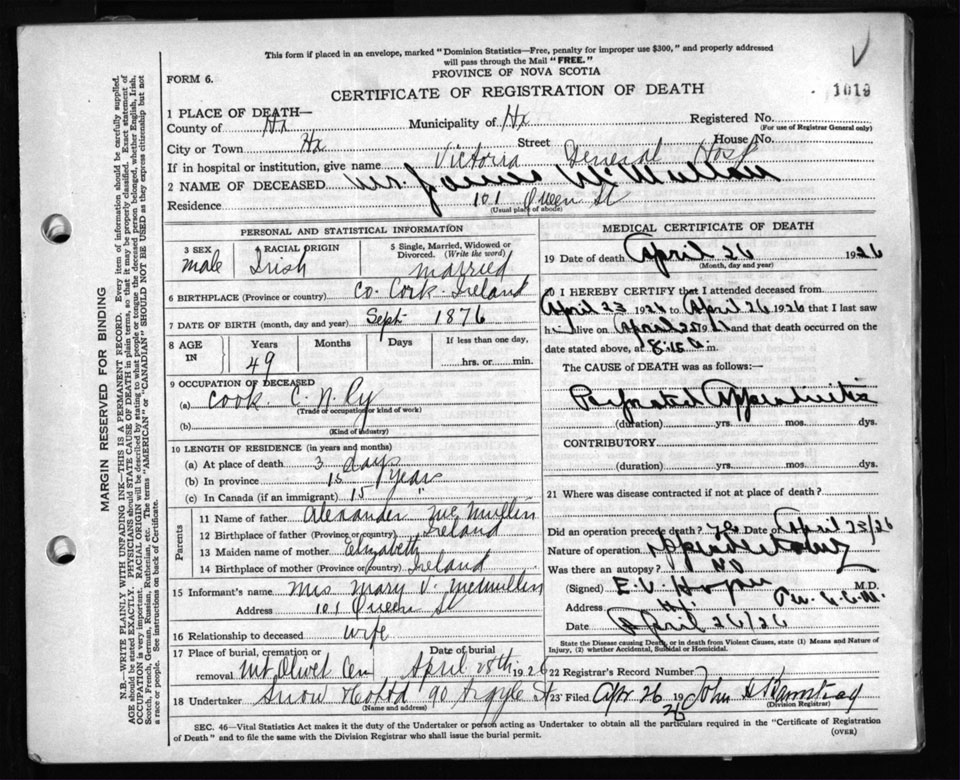 This form if placed in an envelope, marked "Dominion Statistics—Free, penalty for improper use $300," and properly addressed
will pass through the Mail "FREE."
FORM 6.
PROVINCE OF NOVA SCOTIA
CERTIFICATE OF REGISTRATION OF DEATH
1019
1 PLACE OF DEATH—
County of Hx Municipality of Hx Registered No.
(For use of Registrar General only)
City or Town Hx Street House No.
If in hospital or institution, give name Victoria General Hosp
2 NAME OF DECEASED Mr. James McMullan
Residence 101 Queen St
(Usual place of abode)
PERSONAL AND STATISTICAL INFORMATION
3 SEX male
4 RACIAL ORIGIN Irish
5 Single, Married, Widowed or Divorced. (Write the word) married
6 BIRTHPLACE (Province or country) Co. Cork Ireland
7 DATE OF BIRTH (month, day and year) Sept 1876
8 AGE IN Years 49 Months Days If less than one day, hrs. or min.
9 OCCUPATION OF DECEASED
(a) Cook C. N. Ry
(Trade or occupation or kind of work)
(b)
(Kind of industry)
10 LENGTH OF RESIDENCE (in years and months)
(a) At place of death 3 days
(b) In province 15 years
(c) In Canada (if an immigrant) 15 "
Parents
11 Name of father Alexander McMullin
12 Birthplace of father (Province or country) Ireland
13 Maiden name of mother Elizabeth
14 Birthplace of mother (Province or country) Ireland
15 Informant's name Mrs Mary V. McMullin
Address 101 Queen St
16 Relationship to deceased wife
17 Place of burial, cremation or removal Mt Olivet Cem Date of burial April 28th 1926
18 Undertaker Snow & Co Ltd 90 Argyle St
(Name and address)
MEDICAL CERTIFICATE OF DEATH
19 Date of death April 26 1926
(Month, day and year)
20 I HEREBY CERTIFY that I attended deceased from
April 23 1926 to April 26 1926 that I last saw
h alive on April 25 19 and that death occurred on the
date stated above, at 8.15 a m.
The CAUSE of DEATH was as follows:—
Perforated Appendicitis
(duration) yrs. mos. dys.
CONTRIBUTORY
(duration) yrs. mos. dys.
21 Where was disease contracted if not at place of death?
Did an operation precede death? Yes Date April 23/26
Nature of operation Appendectomy
Was there an autopsy? No
(Signed) E. V. M.D.
Address
Date April 26/26
State the Disease causing Death, or in death from Violent Causes, state (1) Means and Nature of
Injury, (2) whether Accidental, Suicidal or Homicidal.
22 Registrar's Record Number
23 Filed Apr 26 1926 John
(Division Registrar)
SEC. 46—Vital Statistics Act makes it the duty of the Undertaker or person acting as Undertaker to obtain all the particulars required in the "Certificate of Registration
of Death" and to file the same with the Division Registrar who shall issue the burial permit.
(OVER)
MARGIN RESERVED FOR BINDING
N.B.—WRITE PLAINLY WITH UNFADING INK—THIS IS A PERMANENT RECORD. Every item of information should be carefully supplied.
AGE should be stated EXACTLY. PHYSICIANS should STATE CAUSE OF DEATH in plain terms, so that it may be properly classified. Exact statement of
OCCUPATION is very important. RACIAL ORIGIN will be described by stating to what people or tongue the deceased person belonged, whether English, Irish,
Scotch, French, German, Russian, Ruthenian, etc. The terms "AMERICAN" or "CANADIAN" SHOULD NOT BE USED as they express citizenship but not
a race or people. See instructions on back of Certificate.